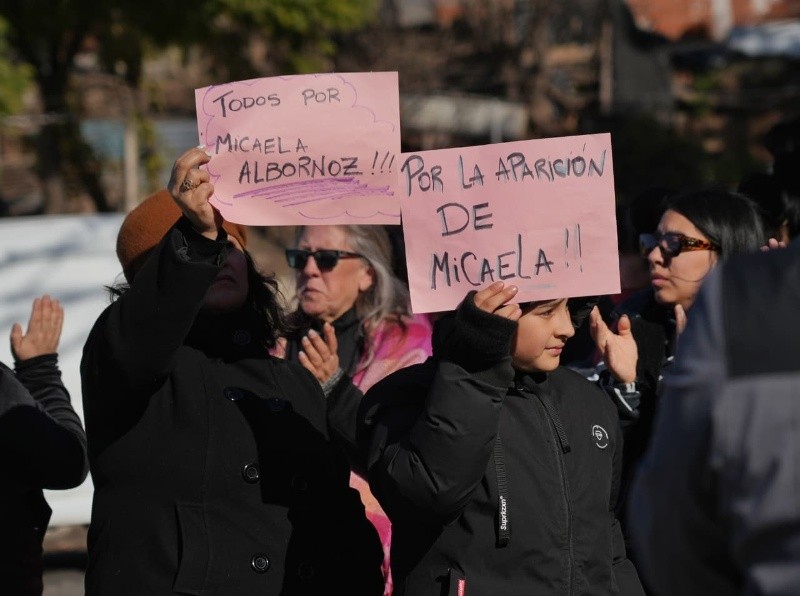 TODOS POR
MICAELA
ALBORNOZ !!!
POR LA APARICIÓN
DE
MICAELA !!
Suprkzxn